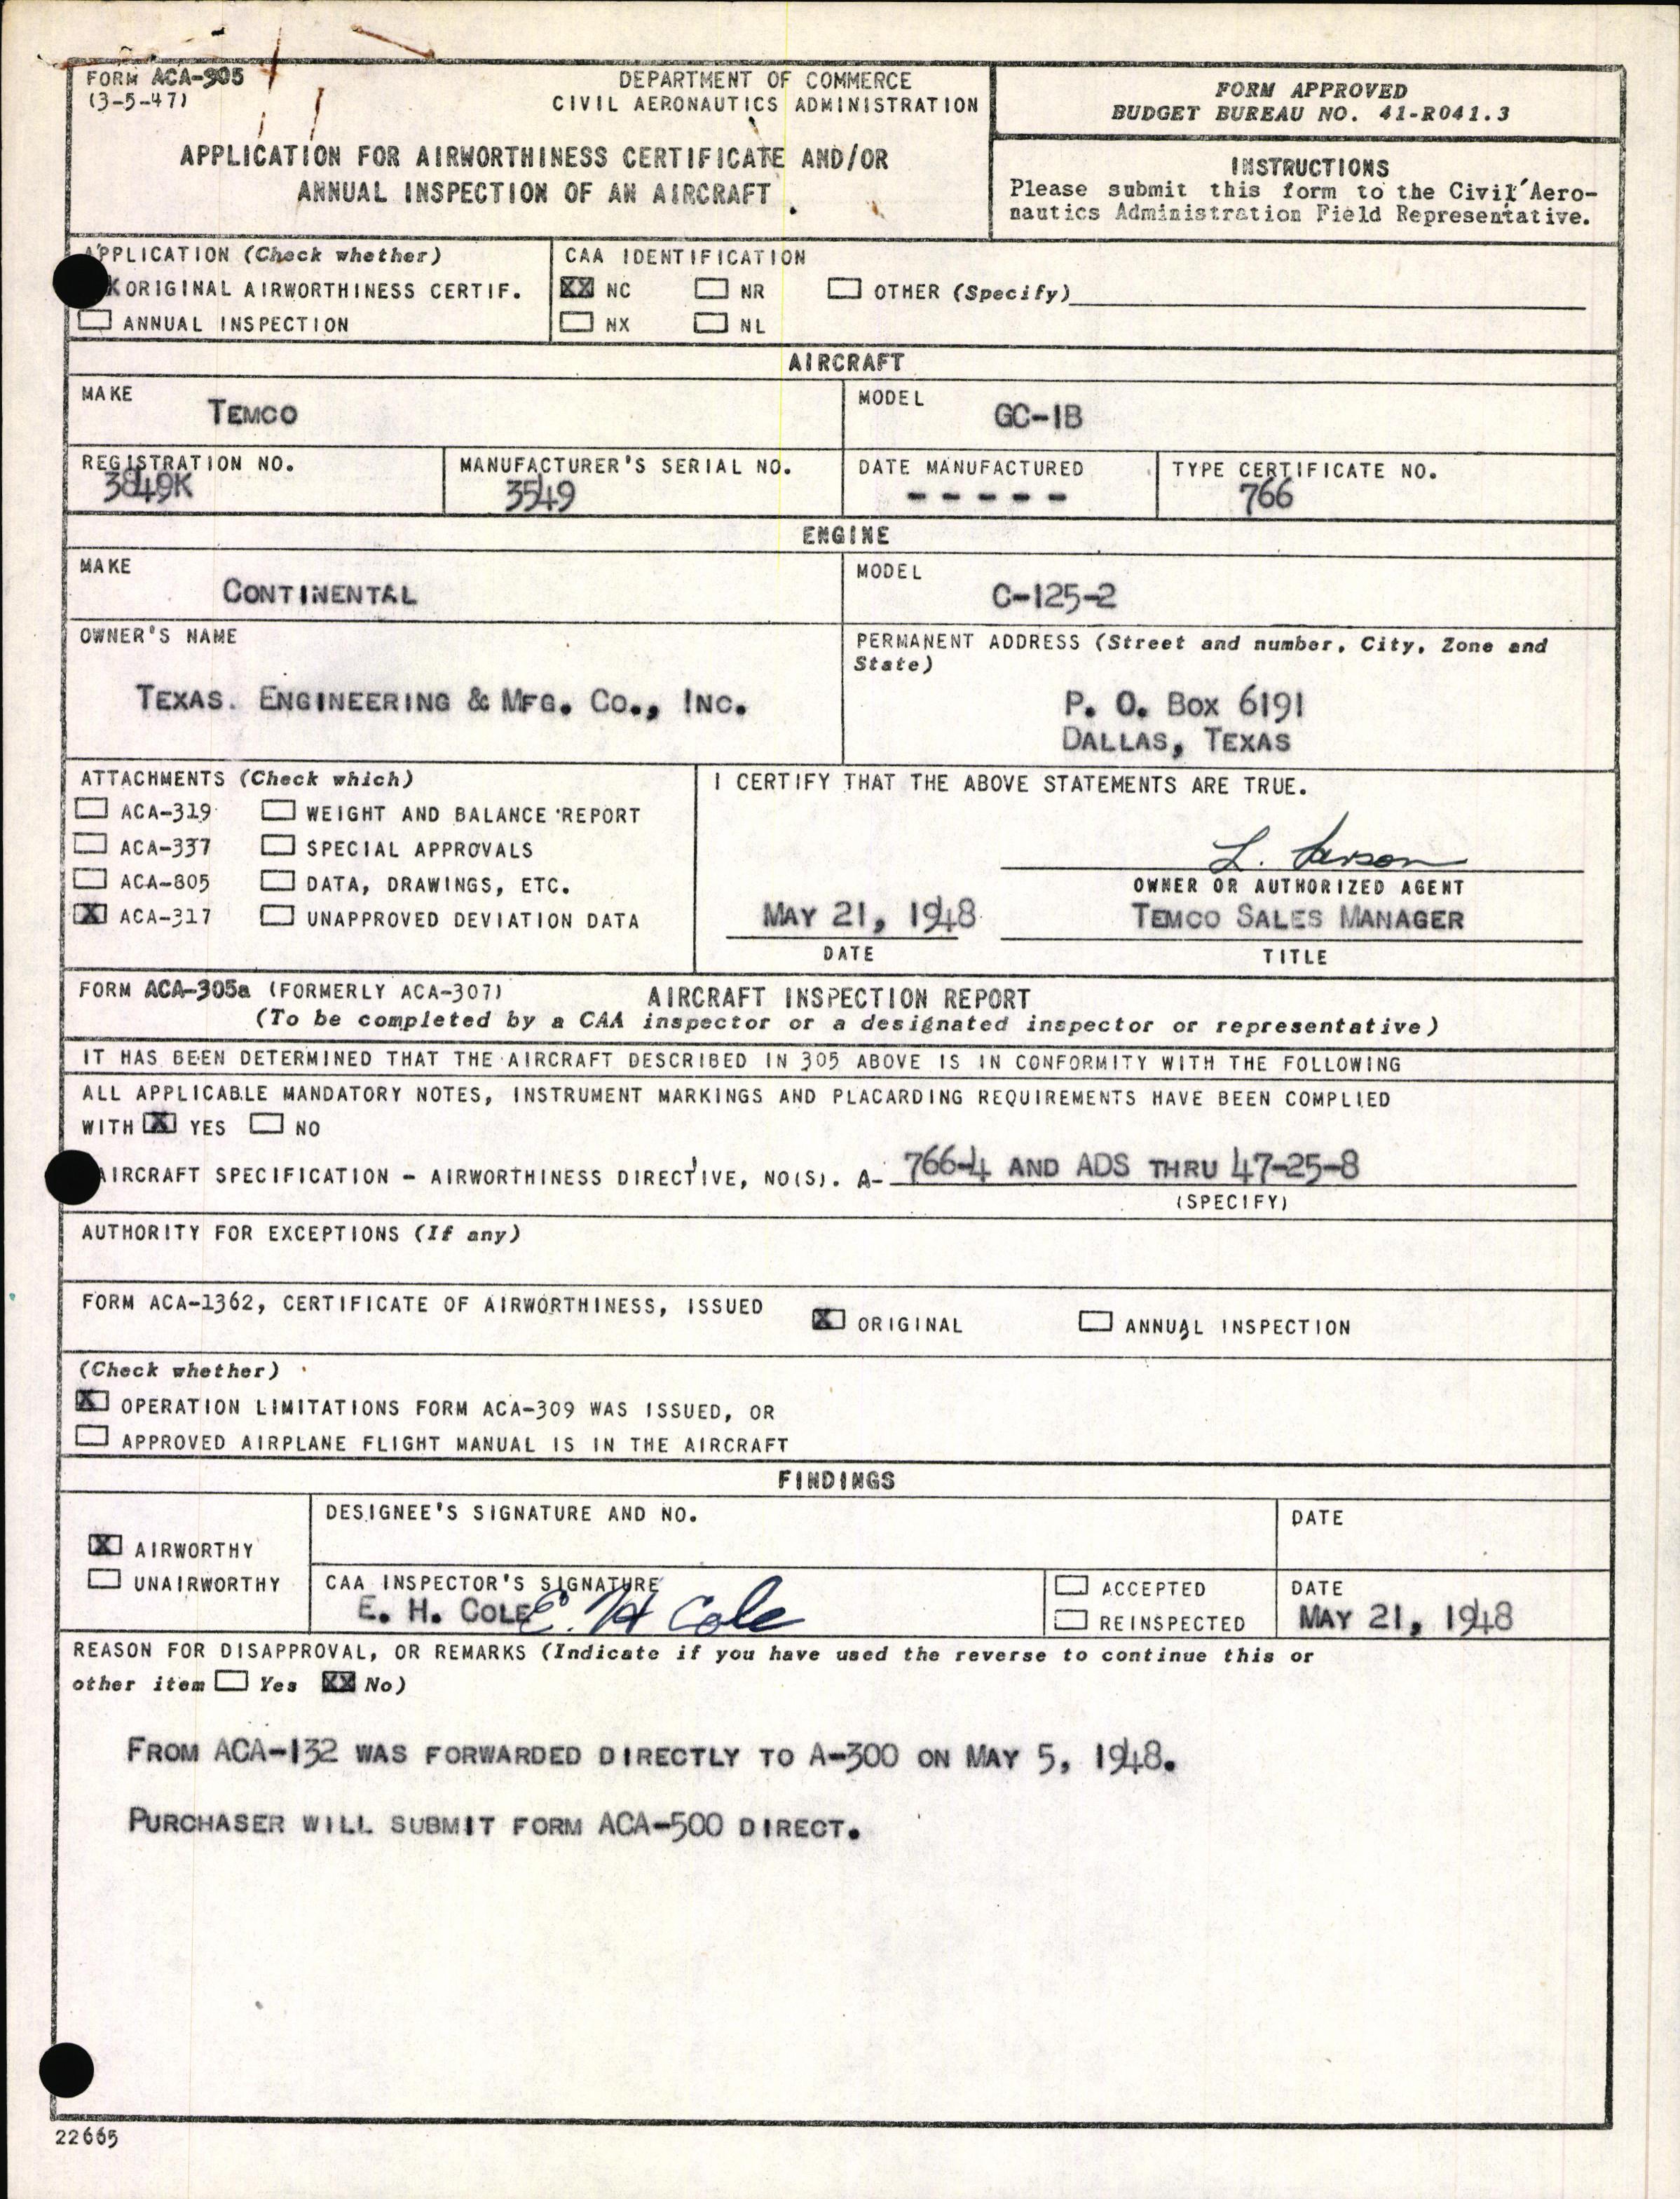 FORM ACA-305
(3-5-47)
DEPARTMENT OF COMMERCE
CIVIL AERONAUTICS ADMINISTRATION
APPLICATION FOR AIRWORTHINESS CERTIFICATE AND/OR
ANNUAL INSPECTION OF AN AIRCRAFT
FORM APPROVED
BUDGET BUREAU NO. 41-R041.3
INSTRUCTIONS
Please submit this form to the Civil Aero-
nautics Administration Field Representative.
APPLICATION (Check whether)
X ORIGINAL AIRWORTHINESS CERTIF.
ANNUAL INSPECTION
CAA IDENTIFICATION
XX NC NR OTHER (Specify)
NX NL
AIRCRAFT
MAKE
TEMCO
MODEL
GC-1B
REGISTRATION NO.
3849K
MANUFACTURER'S SERIAL NO.
3549
DATE MANUFACTURED
- - - - -
TYPE CERTIFICATE NO.
766
ENGINE
MAKE
CONTINENTAL
MODEL
C-125-2
OWNER'S NAME
TEXAS. ENGINEERING & MFG. CO., INC.
PERMANENT ADDRESS (Street and number, City, Zone and
State)
P. O. BOX 6191
DALLAS, TEXAS
ATTACHMENTS (Check which)
ACA-319 WEIGHT AND BALANCE REPORT
ACA-337 SPECIAL APPROVALS
ACA-805 DATA, DRAWINGS, ETC.
X ACA-317 UNAPPROVED DEVIATION DATA
I CERTIFY THAT THE ABOVE STATEMENTS ARE TRUE.
L. Larson
OWNER OR AUTHORIZED AGENT
MAY 21, 1948 TEMCO SALES MANAGER
DATE TITLE
FORM ACA-305a (FORMERLY ACA-307) AIRCRAFT INSPECTION REPORT
(To be completed by a CAA inspector or a designated inspector or representative)
IT HAS BEEN DETERMINED THAT THE AIRCRAFT DESCRIBED IN 305 ABOVE IS IN CONFORMITY WITH THE FOLLOWING
ALL APPLICABLE MANDATORY NOTES, INSTRUMENT MARKINGS AND PLACARDING REQUIREMENTS HAVE BEEN COMPLIED
WITH X YES NO
AIRCRAFT SPECIFICATION - AIRWORTHINESS DIRECTIVE, NO(S). A- 766-4 AND ADS THRU 47-25-8
(SPECIFY)
AUTHORITY FOR EXCEPTIONS (If any)
FORM ACA-1362, CERTIFICATE OF AIRWORTHINESS, ISSUED
X ORIGINAL ANNUAL INSPECTION
(Check whether)
X OPERATION LIMITATIONS FORM ACA-309 WAS ISSUED, OR
APPROVED AIRPLANE FLIGHT MANUAL IS IN THE AIRCRAFT
FINDINGS
X AIRWORTHY
UNAIRWORTHY
DESIGNEE'S SIGNATURE AND NO.
DATE
CAA INSPECTOR'S SIGNATURE
E. H. COLE E. H Cole
ACCEPTED
REINSPECTED
DATE
MAY 21, 1948
REASON FOR DISAPPROVAL, OR REMARKS (Indicate if you have used the reverse to continue this or
other item Yes XX No)
FROM ACA-132 WAS FORWARDED DIRECTLY TO A-300 ON MAY 5, 1948.
PURCHASER WILL SUBMIT FORM ACA-500 DIRECT.
22665